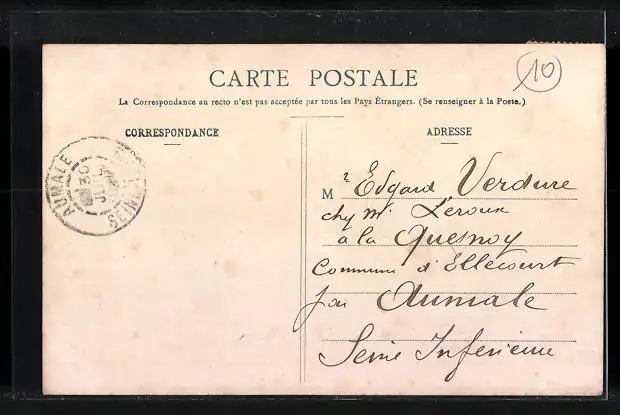 CARTE POSTALE
10
La Correspondance au recto n'est pas acceptée par tous les Pays Étrangers. (Se renseigner à la Poste.)
CORRESPONDANCE
ADRESSE
AUMALE
SEINE
Mr Edgard Verdure
chy Mr. Leroux
à la Quesnoy
Commune d'Ellecourt
par Aumale
Seine Inferieure